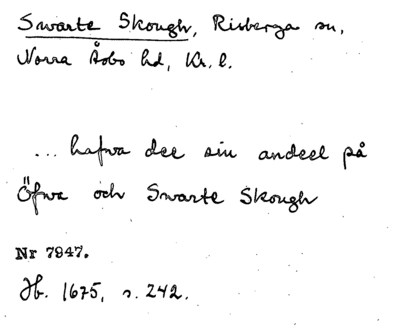 Swarte Skough, Risberga sn,
Norra Åsbo hd, Kr. l.
... hafva dee sin andeel på
Öfwe och Swarte Skough
Nr 7947.
Jb. 1675, s. 242.